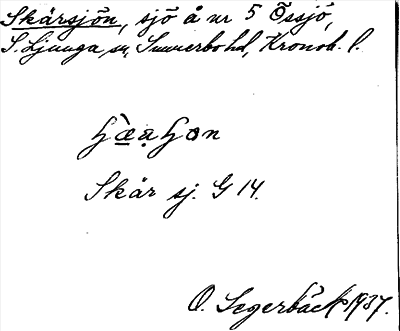 Skärsjön, sjö å nr 5 Össjö,
S. Ljunga sn, Sunnerbo hd, Kronob. l.
Skär sj. G 14.
O. Segerbäck 1937.